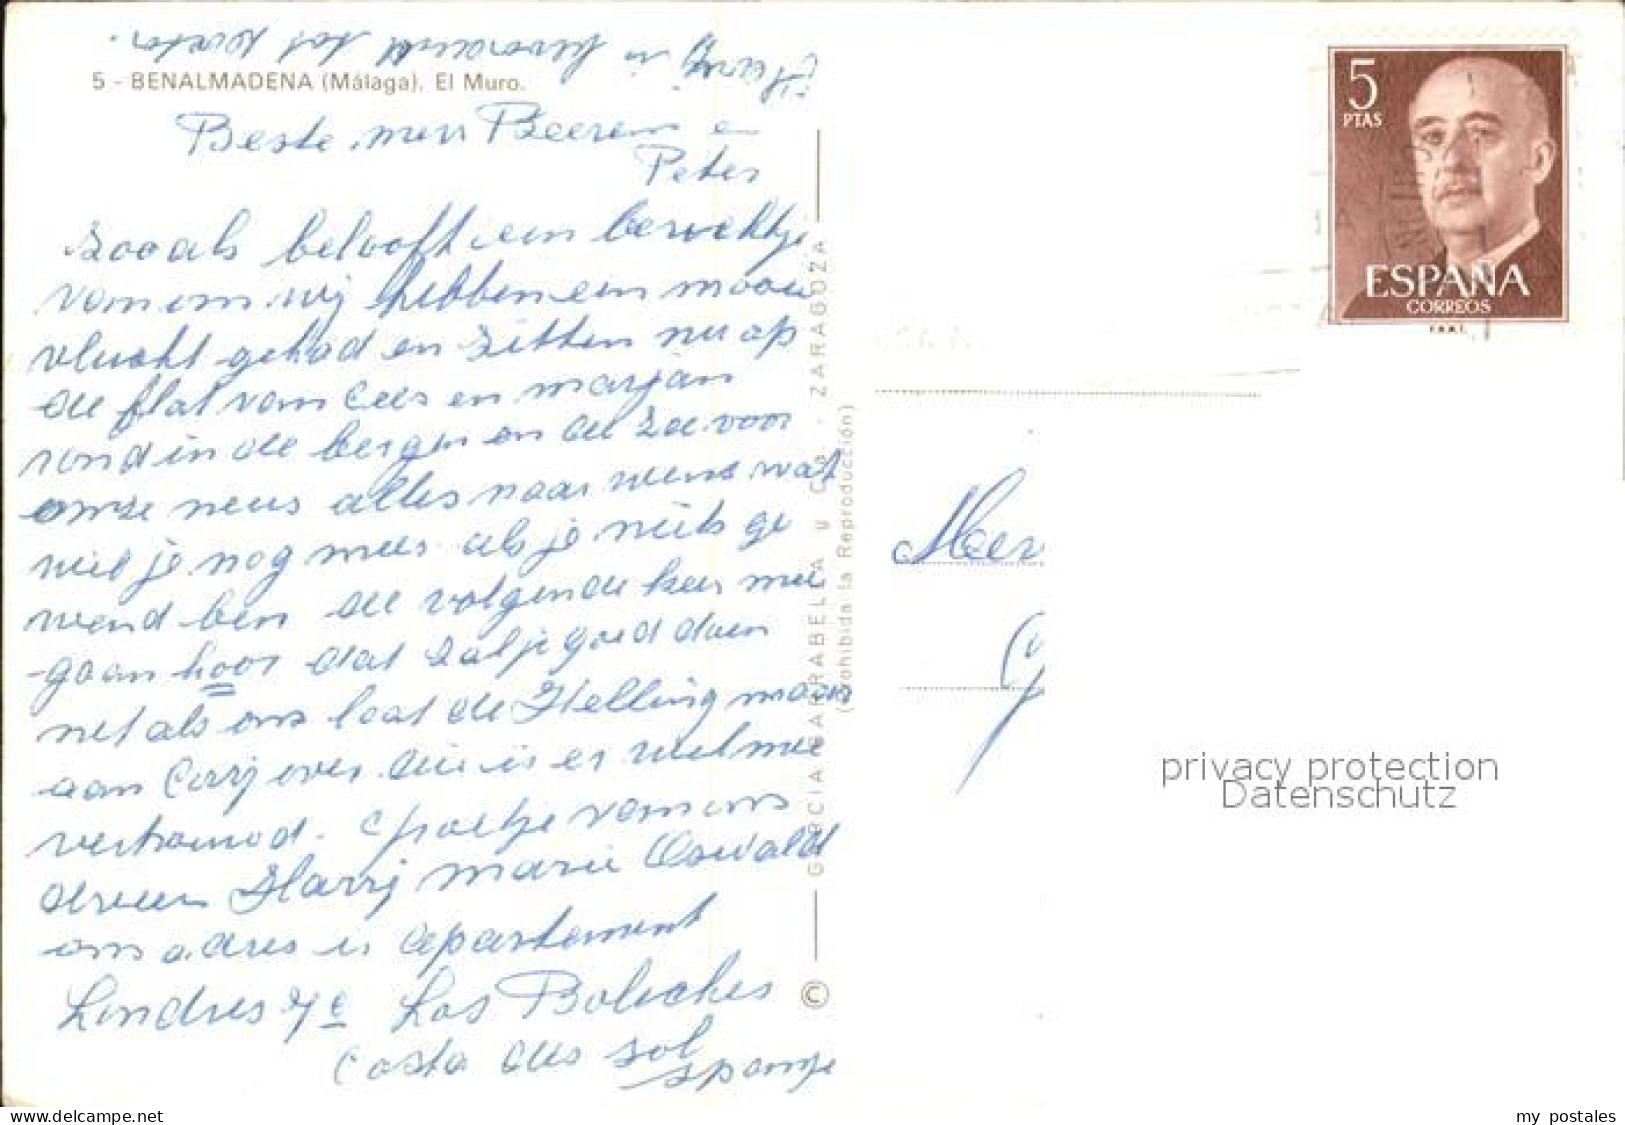 5 - BENALMADENA (Málaga). El Muro.
Beste, mevr Beerens en
Peter
zooals belooft een berichtje
van om wij hebben een mooie
vlucht gehad en zitten nu op
de flat van Cees en marjan
rond in de bergen en de zee voor
onze neus alles naar wens wat
wil je nog meer als je niets ge
wend ben de volgende keer mee
gaan hoor dat zal je goed doen
net als ons laat de Helling maar
aan Corrij over die is er wel mee
vertrouwd. groetje van ons
drieen Harrij marie Oswald
ons adres is apartement
Londres 7e Los Boliches
Costa del sol
spanje
GARCIA GARRABELLA y Cía. - ZARAGOZA
(Prohibida la Reproducción)
©
5
PTAS
ESPAÑA
CORREOS
F.N.M.T.
Mevr
privacy protection
Datenschutz
www.delcampe.net
my_postales